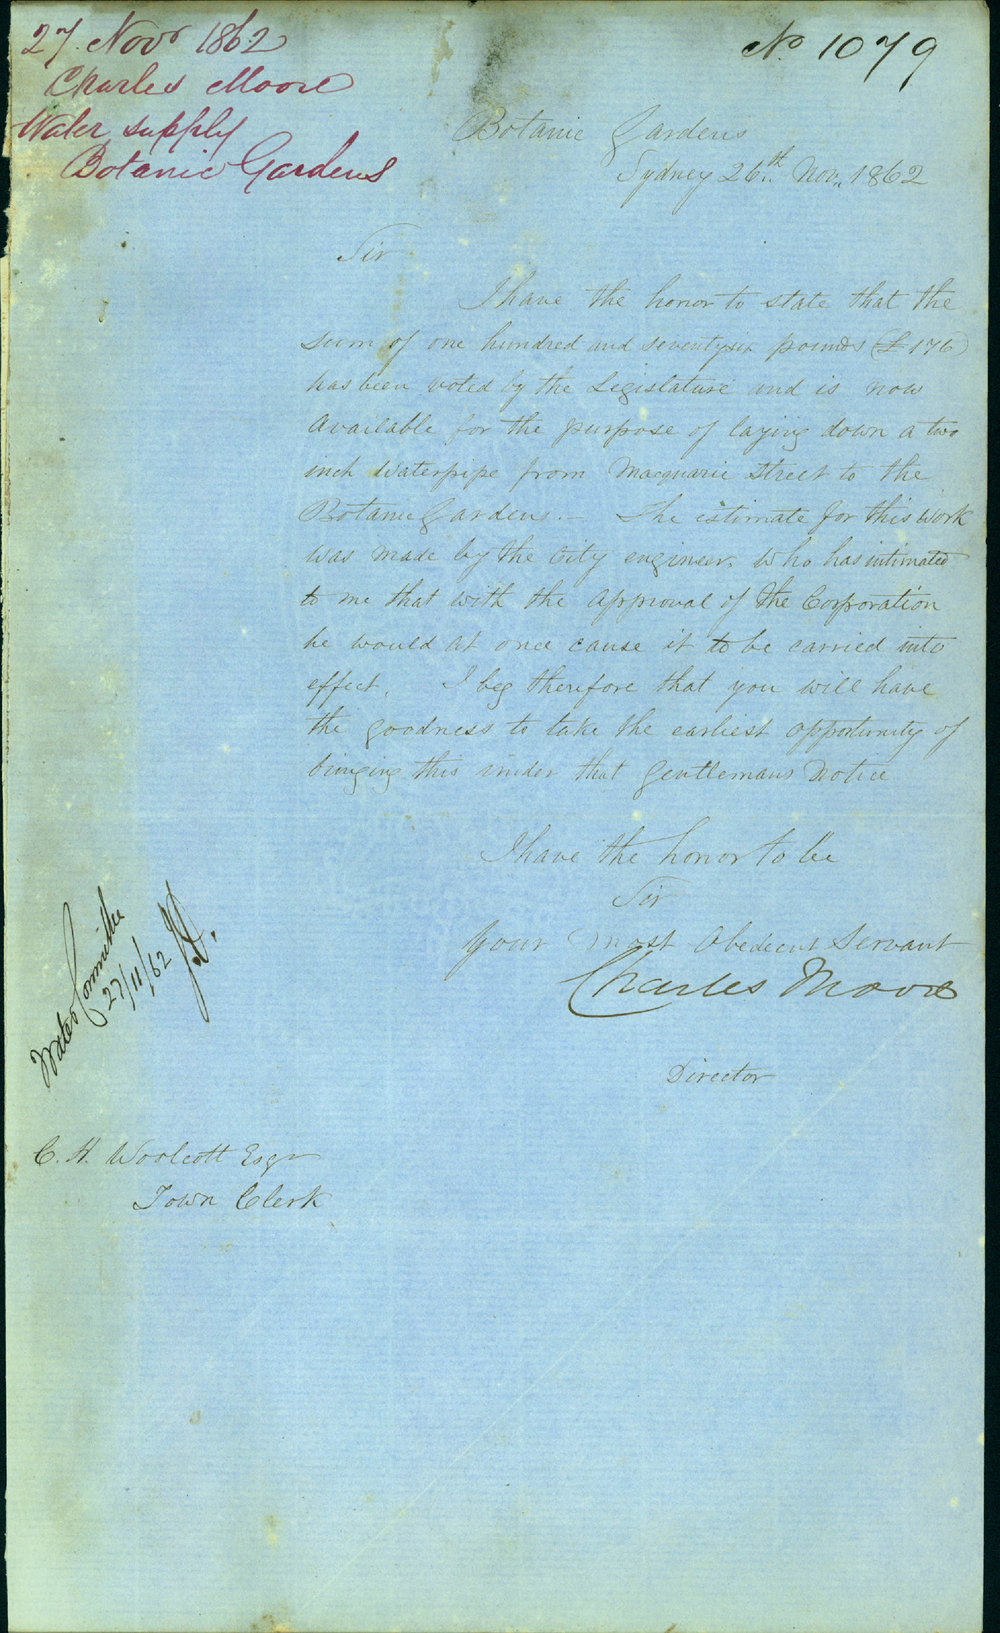 27. Novr 1862
Charles Moore
Water supply
Botanic Gardens
No. 1079
Botanic Gardens
Sydney 26th. Nov. 1862
Sir
I have the honor to state that the
sum of one hundred and seventysix pounds (£176)
has been voted by the Legislature and is now
available for the purpose of laying down a two
inch Waterpipe from Macquarie Street to the
Botanic Gardens. — The estimate for this work
was made by the City engineer, who has intimated
to me that with the approval of the Corporation
he would at once cause it to be carried into
effect. I beg therefore that you will have
the goodness to take the earliest opportunity of
bringing this under that Gentlemans Notice
I have the honor to be
Sir
Your most Obedient Servant
Charles Moore
Director
Water Committee
27/11/62
C. H. Woolcott Esqr
Town Clerk